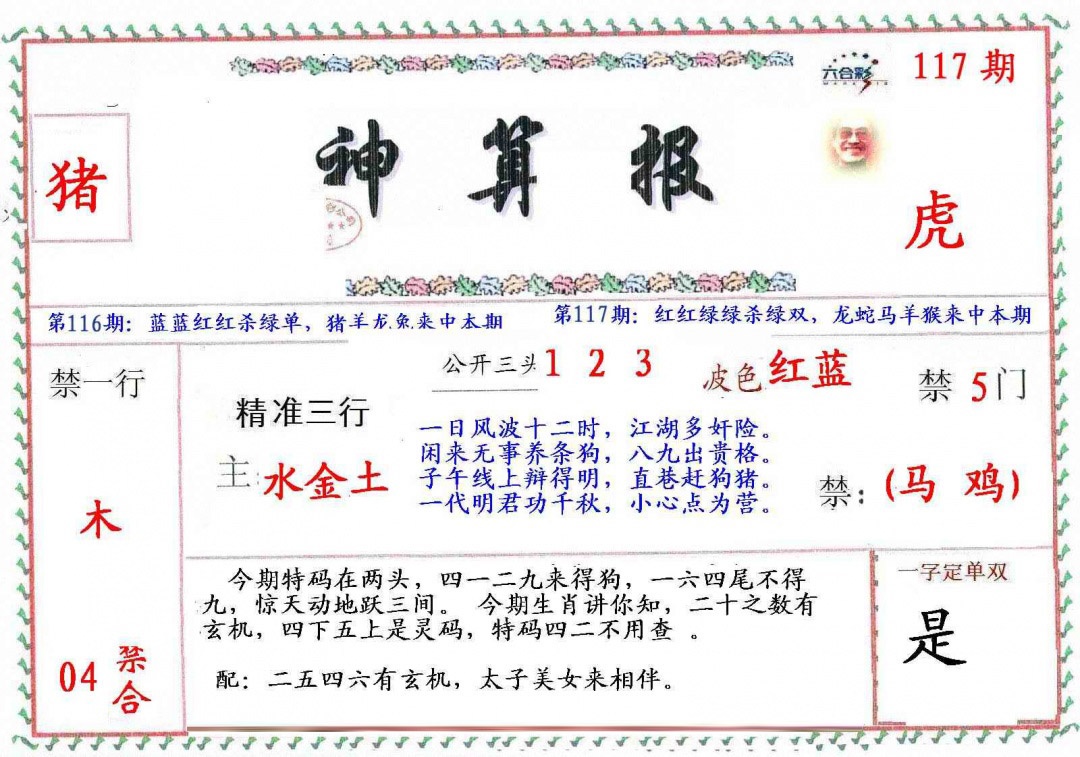 六合彩
117期
神算报
猪
虎
第116期：蓝蓝红红杀绿单，猪羊龙兔来中本期
第117期：红红绿绿杀绿双，龙蛇马羊猴来中本期
禁一行
公开三头 1 2 3
波色 红蓝
禁 5 门
精准三行
主：水金土
一日风波十二时，江湖多奸险。
闲来无事养条狗，八九出贵格。
子午线上辩得明，直巷赶狗猪。
一代明君功千秋，小心点为营。
禁：（马 鸡）
木
今期特码在两头，四一二九来得狗，一六四尾不得
九，惊天动地跃三间。 今期生肖讲你知，二十之数有
玄机，四下五上是灵码，特码四二不用查 。
配：二五四六有玄机，太子美女来相伴。
一字定单双
是
04 禁合